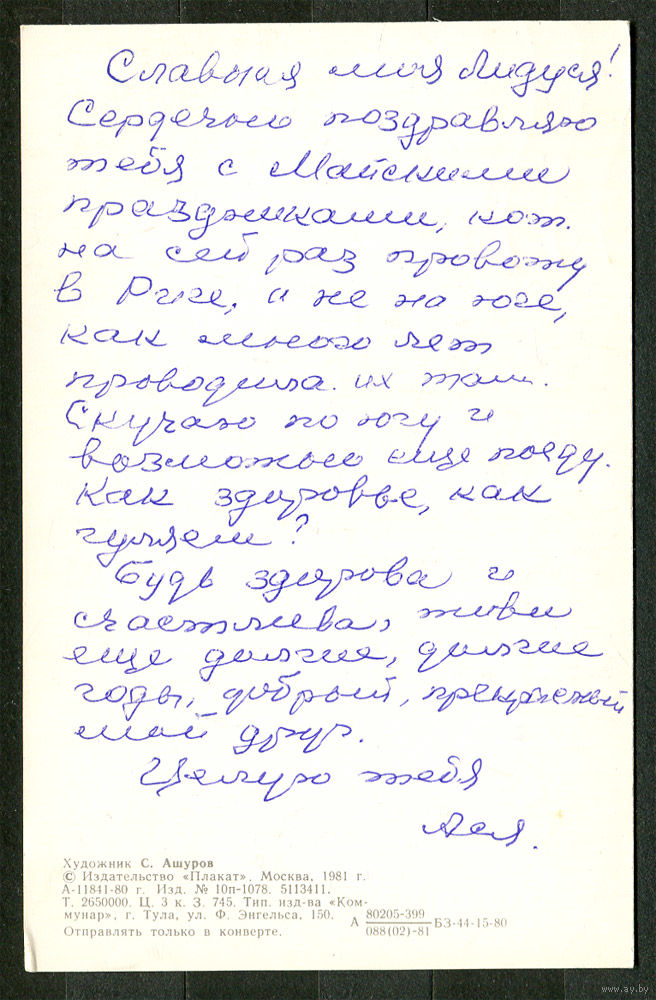 Славная моя Лидуся!
Сердечно поздравляю
тебя с Майскими
праздниками, кот.
на сей раз провожу
в Риге, и не на юге,
как много лет
проводила их там.
Скучаю по югу и
возможно еще поеду.
Как здоровье, как
гуляем?
Будь здорова и
счастлива, живи
еще долгие, долгие
годы, добрый, прекрасный
мой друг.
Целую тебя
Ася.
Художник С. Ашуров
© Издательство «Плакат». Москва, 1981 г.
А-11841-80 г. Изд. № 10п-1078. 5113411.
Т. 2650000. Ц. 3 к. З. 745. Тип. изд-ва «Ком-
мунар», г. Тула, ул. Ф. Энгельса, 150.
Отправлять только в конверте.
А 80205-399 БЗ-44-15-80
088(02)-81
www.ay.by